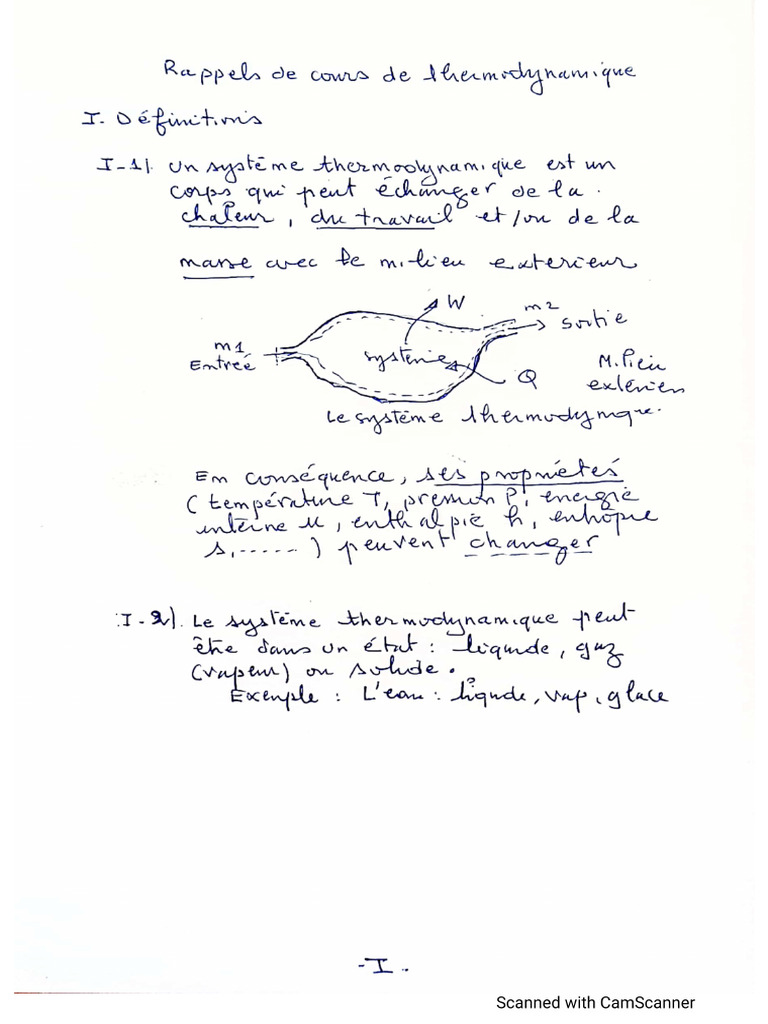 Rappels de cours de thermodynamique
I. Définitions
I-1). Un système thermodynamique est un
corps qui peut échanger de la
chaleur, du travail et/ou de la
masse avec le milieu exterieur
W
m2
sortie
m1
Entrée
système
Q
Milieu
extérieur
Le système thermodynmque.
En conséquence, ses propriétés
(température T, pression P, énergie
interne u, enthalpie h, entropie
s,......) peuvent changer
I-2). Le système thermodynamique peut
être dans un état : liquide, gaz
(vapeur) ou solide.
Exemple : L'eau : liquide, vap, glace
-I.
Scanned with CamScanner